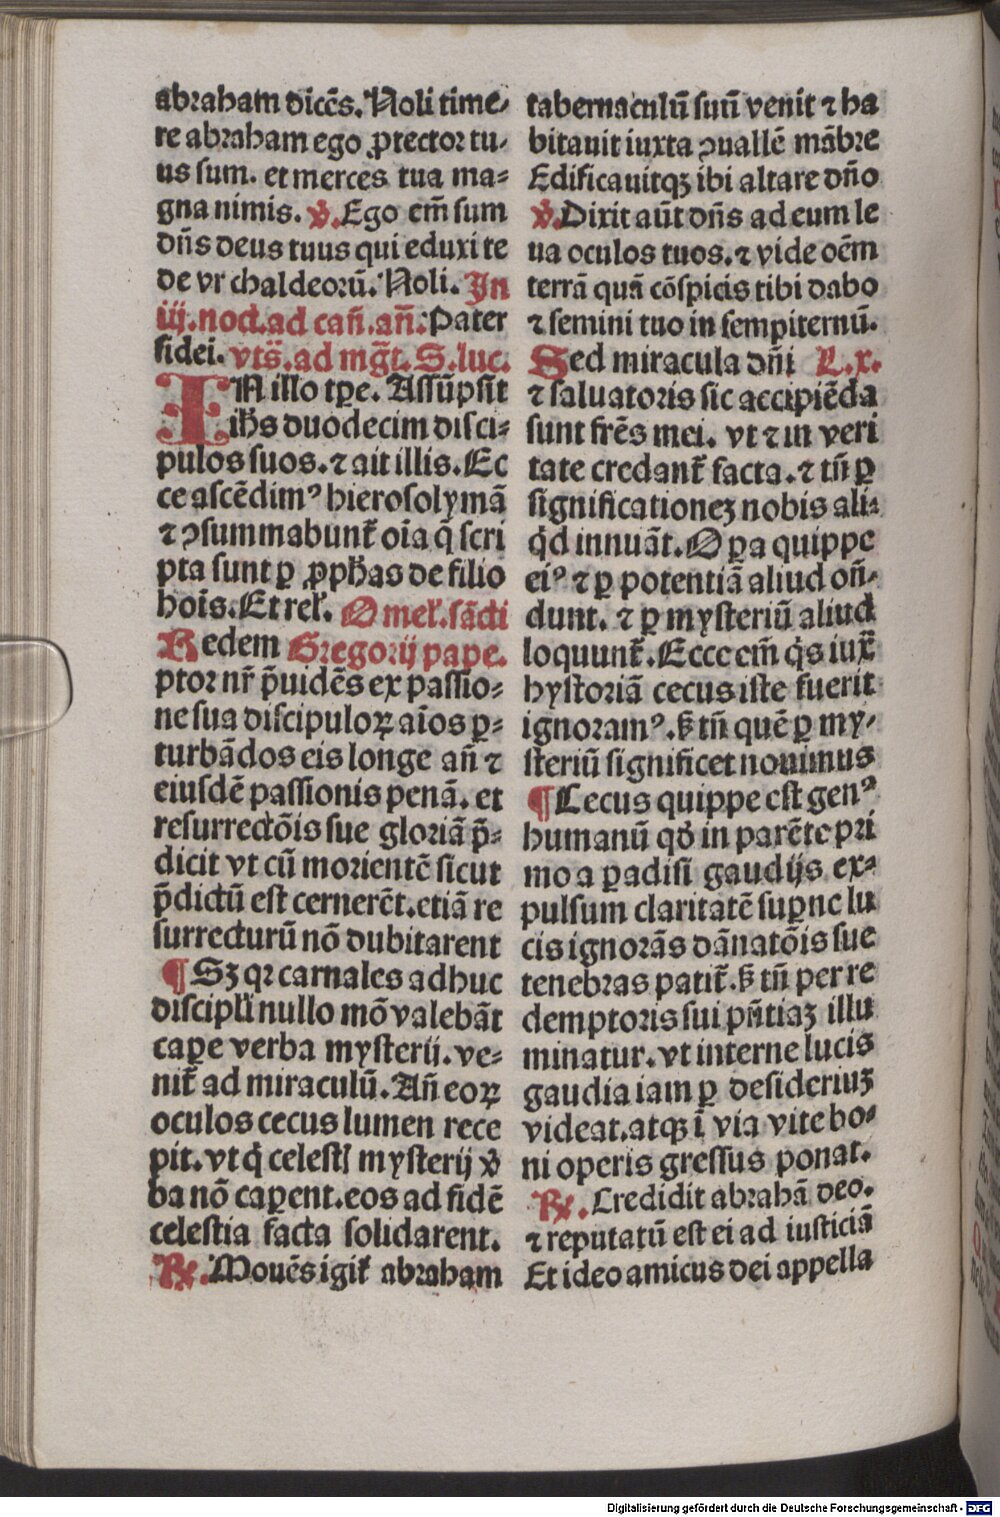 abraham dicēs. Noli time⸗
re abraham ego ꝓtector tu⸗
us sum. et merces tua ma⸗
gna nimis. ℣. Ego em̄ sum
dn̄s deus tuus qui eduxi te
de vr chaldeorū. Noli. In
iij. noct. ad can̄. an̄. Pater
fidei. vts̄. ad mḡt. S. luc.
IN illo tp̄e. Assūpsit
ih̄s duodecim disci⸗
pulos suos. ⁊ ait illis. Ec
ce ascēdimꝰ hierosolymā
⁊ ↄsummabunt᷑ oīa q̄ scri
pta sunt ꝑ ꝓph̄as de filio
hoīs. Et rel̄. Omel̄. sācti
Redem Gregorij pape.
ptor nr̄ p̄uidēs ex passio⸗
ne sua discipuloꝝ aīos ꝑ⸗
turbādos eis longe an̄ ⁊
eiusdē passionis penā. et
resurrectōis sue gloriā p̄⸗
dicit vt cū morientē sicut
p̄dictū est cernerēt. etiā re
surrecturū nō dubitarent
¶ Sꝫ qr carnales adhuc
discipl̄i nullo mō valebāt
caꝑe verba mysterij. ve⸗
nit᷑ ad miraculū. An̄ eoꝝ
oculos cecus lumen rece
pit. vt q̇ celestī mysterij v̇
ba nō caꝑent. eos ad fidē
celestia facta solidarent.
℟. Mouēs igit᷑ abraham
tabernaculū suū venit ⁊ ha
bitauit iuxta ↄuallē mābre
Edificauitqꝫ ibi altare dn̄o
℣. Dixit aūt dn̄s ad eum le
ua oculos tuos. ⁊ vide oēm
terrā quā cōspicis tibi dabo
⁊ semini tuo in sempiternū.
Sed miracula dn̄i L. x.
⁊ saluatoris sic accipiēda
sunt frēs mei. vt ⁊ in veri
tate credant᷑ facta. ⁊ tn̄ ꝑ
significationeꝫ nobis ali⸗
q̇d innuāt. Oꝑa quippe
eiꝰ ⁊ ꝑ potentiā aliud on̄⸗
dunt. ⁊ ꝑ mysteriū aliud
loquunt᷑. Ecce em̄ q̇s iux̄
hystoriā cecus iste fuerit
ignoramꝰ. s̄ tn̄ quē ꝑ my⸗
steriū significet nouimus
¶ Cecus quippe est genꝰ
humanū qd̓ in parēte pri
mo a ꝑadisi gaudijs ex⸗
pulsum claritatē suꝑne lu
cis ignorās dānatōis sue
tenebras patit᷑. s̄ tn̄ per re
demptoris sui pn̄tiaꝫ illu
minatur. vt interne lucis
gaudia iam ꝑ desideriuꝫ
videat. atqꝫ ī via vite bo⸗
ni operis gressus ponat.
℟. Credidit abrahā deo.
⁊ reputatū est ei ad iusticiā
Et ideo amicus dei appella
Digitalisierung gefördert durch die Deutsche Forschungsgemeinschaft - DFG